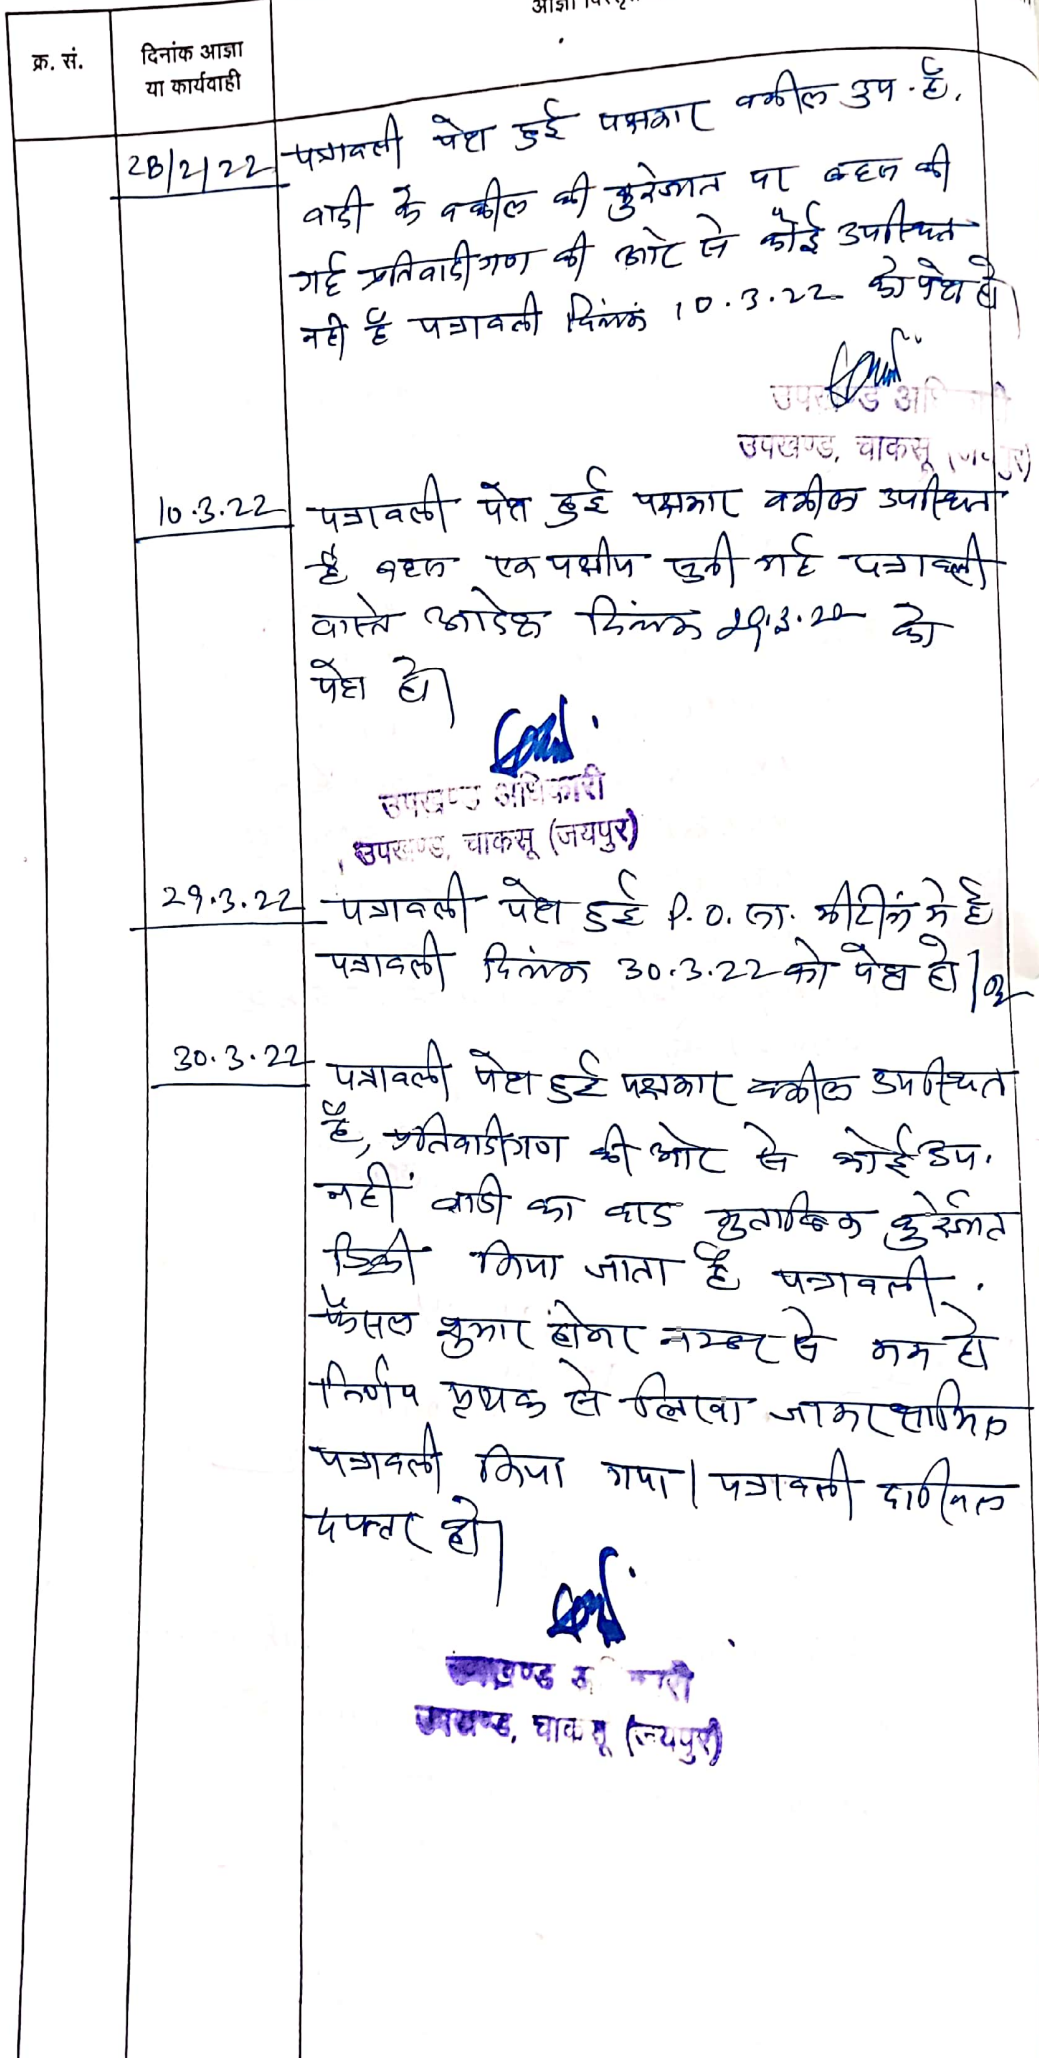 आज्ञा विस्तृत
क्र. सं.
दिनांक आज्ञा
या कार्यवाही
28/2/22
पत्रावली पेश हुई पक्षकार वकील उप. है.
वादी के वकील की कुरेजात पर बहस की
गई प्रतिवादीगण की ओर से कोई उपस्थित
नही है पत्रावली दिनांक 10.3.22 को पेश हो।
उपखण्ड अधिकारी
उपखण्ड, चाकसू (जयपुर)
10.3.22
पत्रावली पेश हुई पक्षकार वकील उपस्थित
है, बहस एक पक्षीय सुनी गई पत्रावली
वास्ते आदेश दिनांक 29.3.22 को
पेश हो।
उपखण्ड अधिकारी
उपखण्ड, चाकसू (जयपुर)
29.3.22
पत्रावली पेश हुई P.O. सा. मीटींग मे है
पत्रावली दिनांक 30.3.22 को पेश हो।
30.3.22
पत्रावली पेश हुई पक्षकार वकील उपस्थित
है, प्रतिवादीगण की ओर से कोई उप.
नहीं वादी का वाद मुताबिक कुर्रेजात
डिक्री किया जाता है पत्रावली.
फैसल शुमार होकर नम्बर से कम हो
निर्णय पृथक से लिखा जाकर शामिल
पत्रावली किया गया। पत्रावली दाखिल
दफ्तर हो।
उपखण्ड अधिकारी
उपखण्ड, चाकसू (जयपुर)